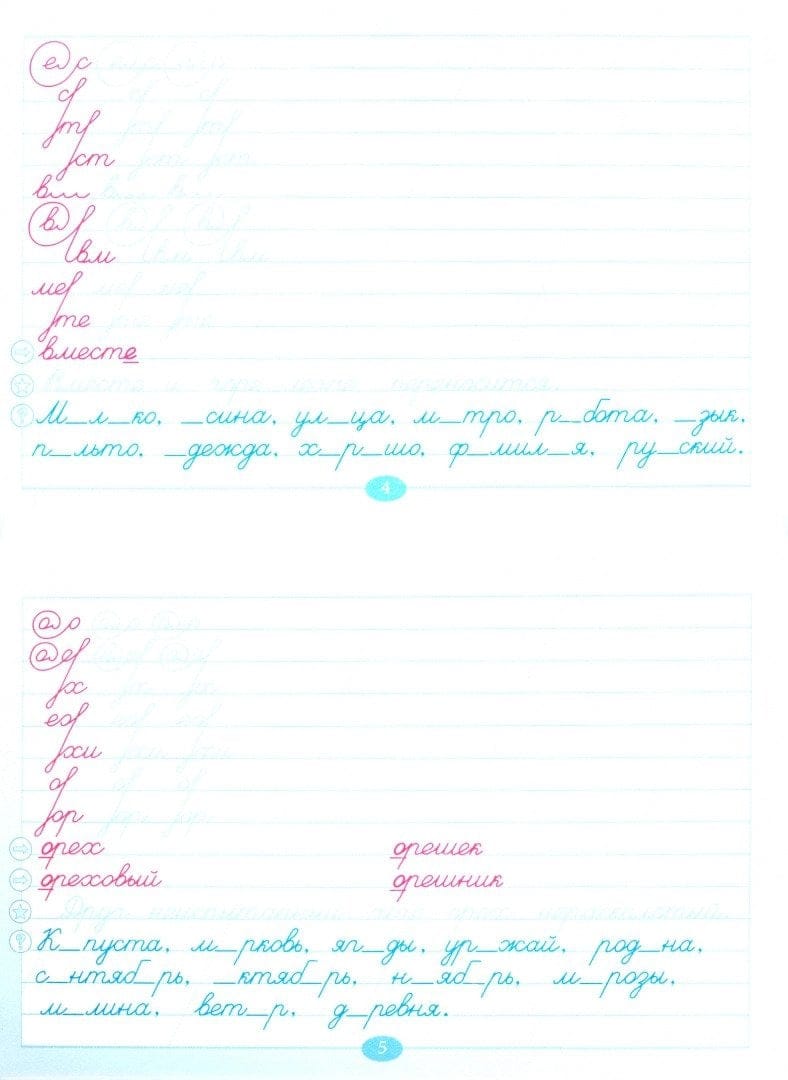 е с
с
т
ст
в
в
вм
ме
те
вместе
Вместе и горе легче переносится.
М_л_ко, _сина, ул_ца, м_тро, р_бота, _зык,
п_льто, _дежда, х_р_шо, ф_мил_я, ру_ский.
4
о о
х
ео
хи
о
ор
орех орешек
ореховый орешник
Друг неиспытанный что орех нерасколотый.
К_пуста, м_рковь, яг_ды, ур_жай, род_на,
с_нтяб_рь, _ктяб_рь, н_яб_рь, м_розы,
м_лина, вет_р, д_ревня.
5